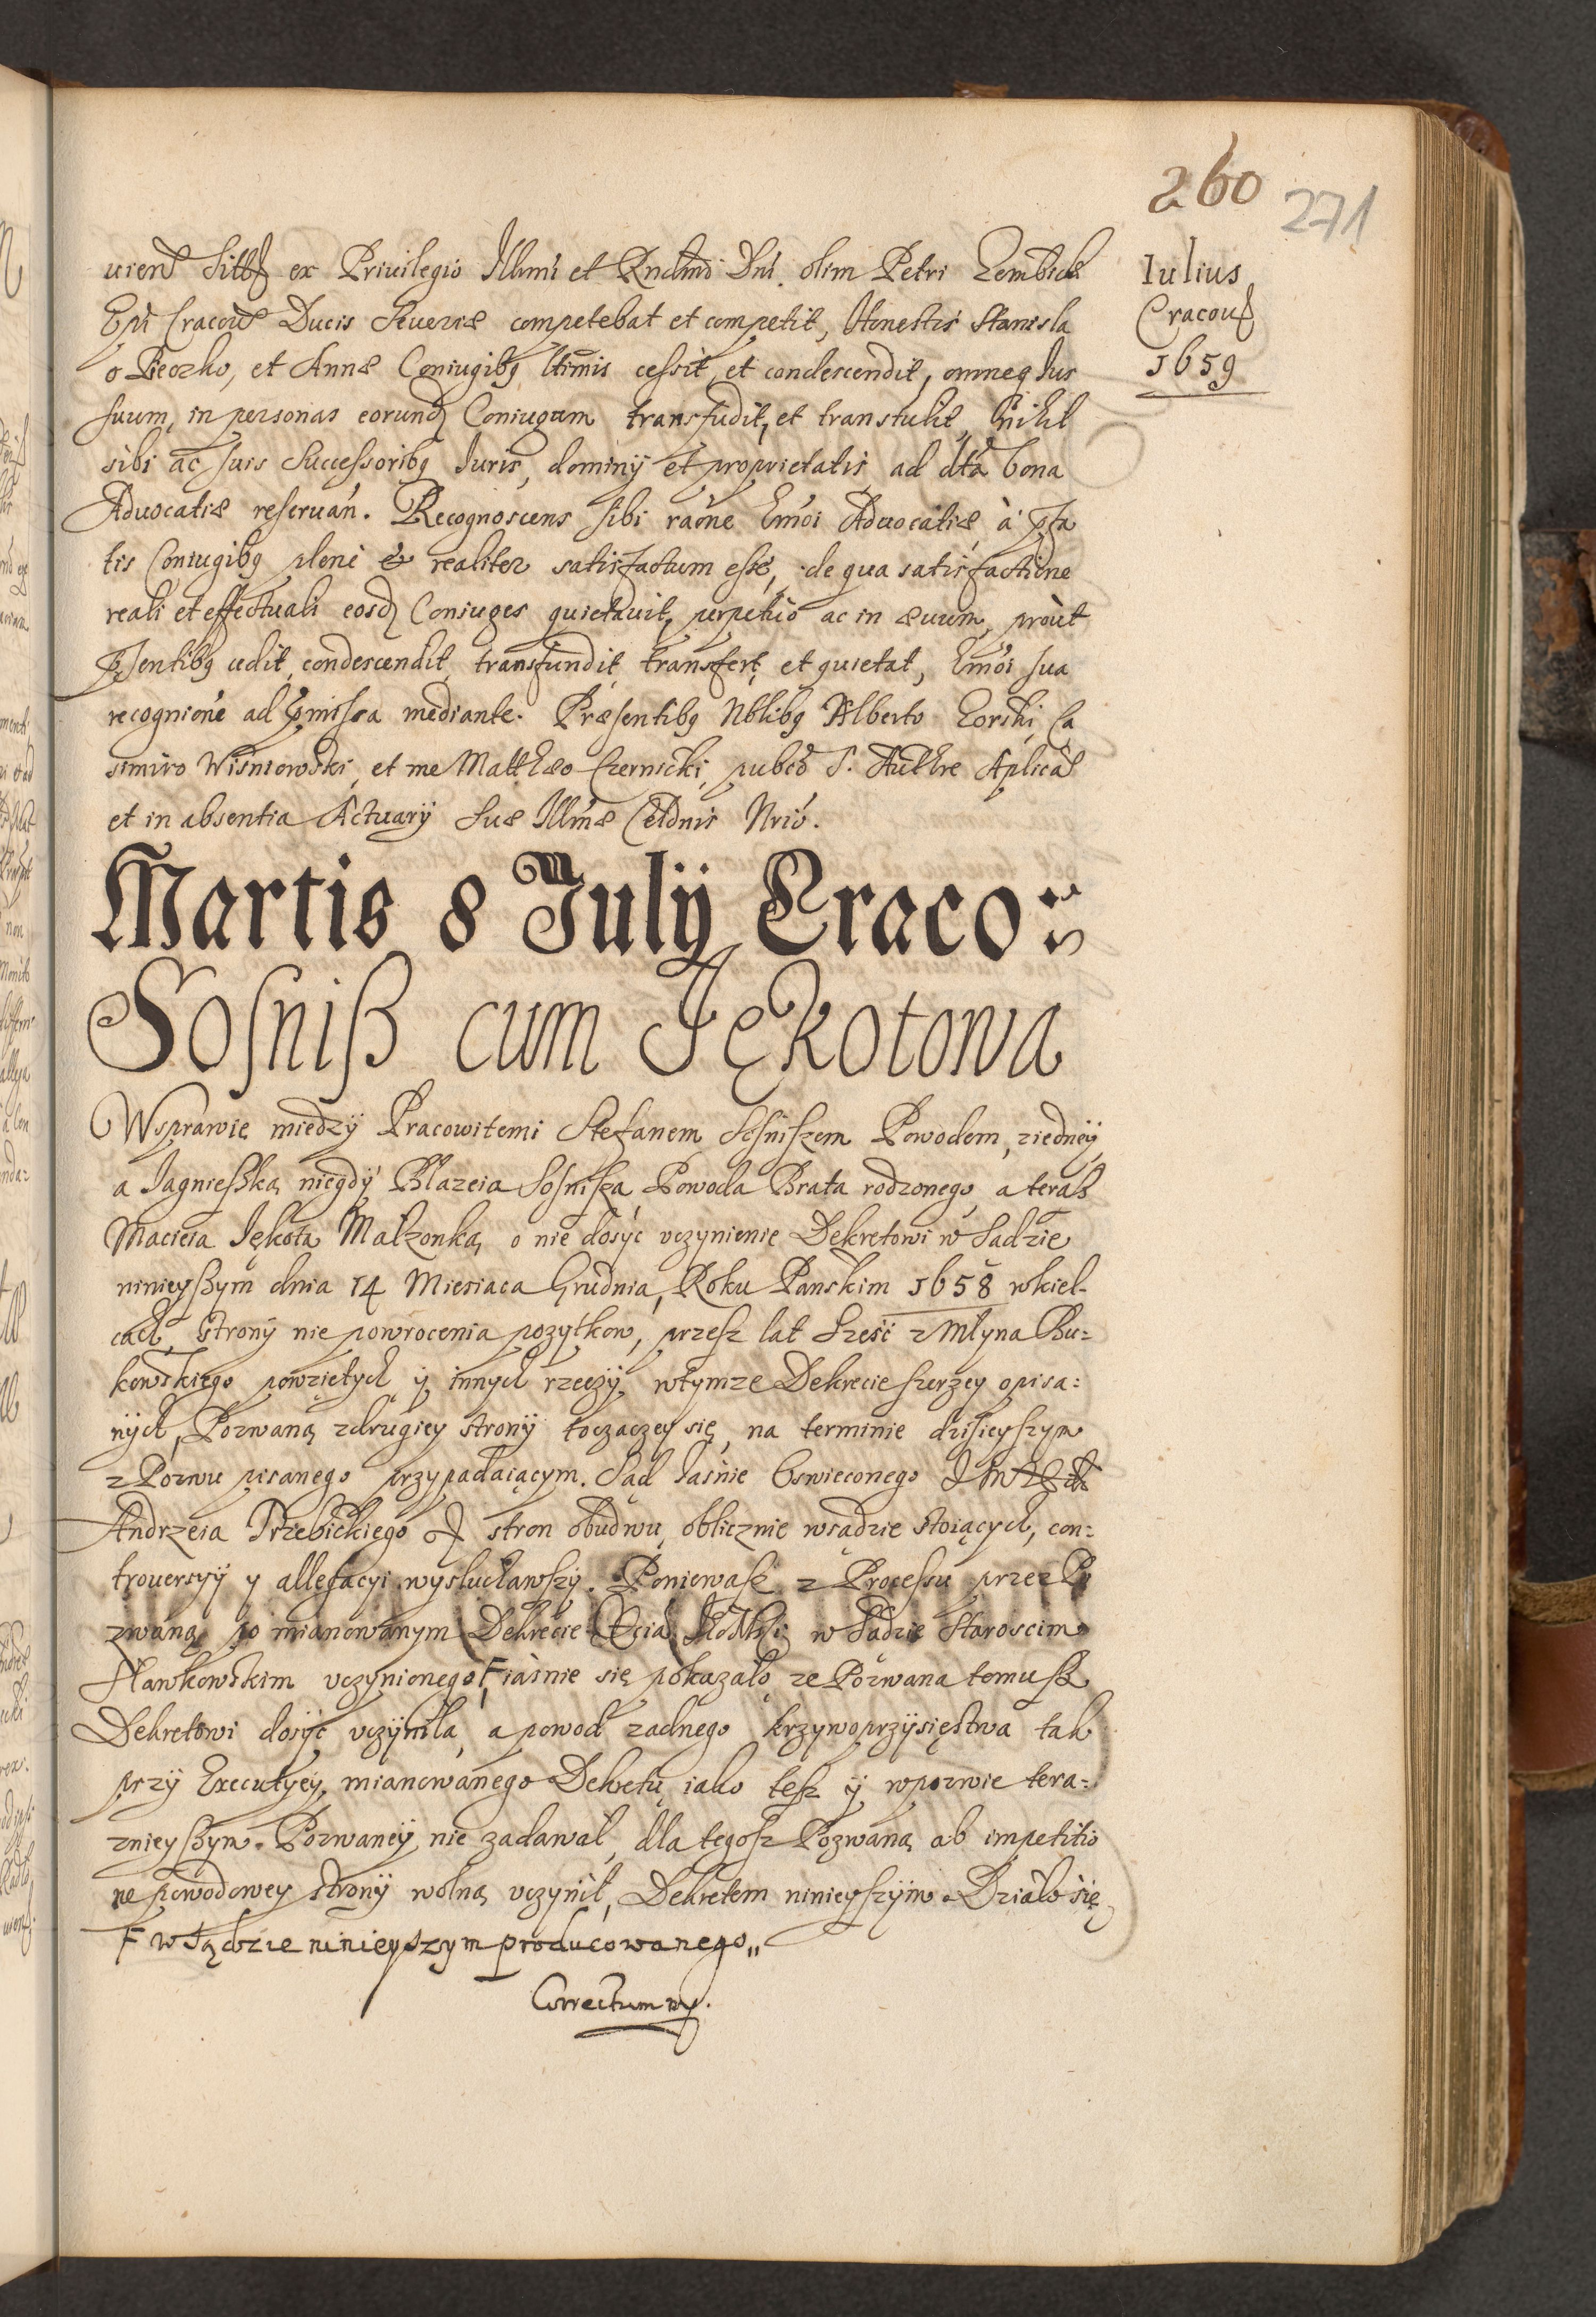 260
271
Iulius
Cracou
1659
uien Sitt ex Priuilegio Illmi et Rndmi Dni olim Petri Gembicki
Epi Cracou Ducis Seueriæ competebat et competit, Honestis Stanisla
o Peczko, et Annæ Coniugibq ltimis cessit, et condescendit, omneq Ius
suum, in personas eorund Coniugum transfudit, et transtulit, Nihil
sibi ac suis Successoribq Iuris, dominij et proprietatis ad dta bona
Aduocatiæ reseruan. Recognoscens sibi raone Emoi Aduocatiæ à pfa
tis Coniugibq plene & realiter satisfactum esse, de qua satisfactione
reali et effectuali eosd Coniuges quietauit, perpetuo ac in æuum, prout
psentibq cedit, condescendit, transfundit, transfert, et quietat, Emoi sua
recognione ad pmissa mediante. Præsentibq Nblibq Alberto Gorski, Ca
simiro Wisniowski, et me Matthæo Czernicki pubco S. Authre Aplica
et in absentia Actuarij Suæ Illmæ Celdnis Nrio.
Martis 8 Iulij Craco:
Sosniß cum Jękotowa
Wsprawie miedzy Pracowitemi Stefanem Sosniszem Powodem, ziedney
a Jagnießką niegdy Błazeia Sosnisza Powoda Brata rodzonego, a teraß
Macieia Jękota Małżonką, o nie dosyc vczynienie Dekretowi w Sadzie
ninieyßym dnia 14 Miesiaca Grudnia, Roku Panskim 1658 wkiel-
cach, strony nie powrocenia pozytkow, przesz lat Szesc z Młyna Bu=
kowskiego powziętych y innych rzeczy, wtymze Dekrecie szerzey opisa=
nych, Pozwaną zdrugiey strony toczączey się, na terminie dzisieyszym
z Pozwu pisanego przypadaiącym. Sąd Jaśnie Oswieconego
Andrzeia Trzebickiego stron obudwu, oblicznie wsądzie stoiących, con=
trouersyy y allegacyi wysłuchawszy. Ponieważ z Processu przez Po
zwaną po mianowanym Dekrecie w Sądzie Staroscim
Sławkowskim vczynionego F iaśnie się pokazało ze Pozwana temusz
Dekretowi dosyc vczyniła, a powod zadnego krzywoprzysięstwa tak
przy Executyey, mianowanego Dekretu, iako tesz y wpozwie tera=
znieyßym Pozwaney nie zadawał, dla tegosz Pozwaną ab impetitio
ne powodowey strony wolną vczynił, Dekretem ninieyszym. Działo się
F w Sądzie ninieyszym producowanego
Correctum